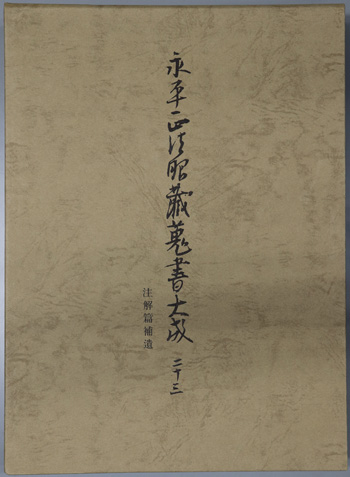 永平正法眼蔵蒐書大成 二十三
注解篇補遺